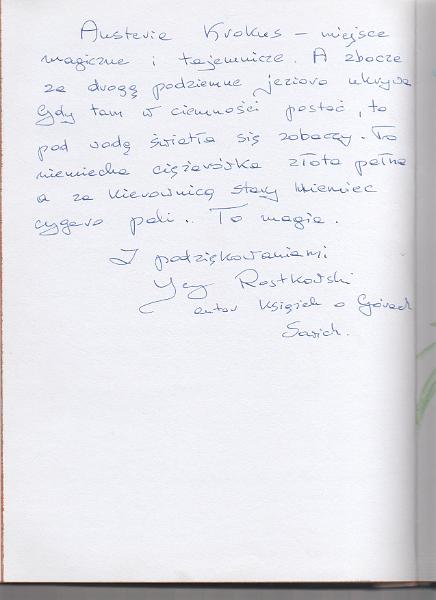 Austeria Krokus – miejsce
magiczne i tajemnicze. A zbocze
za drogą podziemne jezioro ukrywa
Gdy tam w ciemności postać, to
pod wodą światła się zobaczy. To
niemiecka ciężarówka złota pełna
a za kierownicą stary Niemiec
cygaro pali.. To magia.
Z podziękowaniami
Jerzy Rostkowski
autor książek o Górach
Sowich.